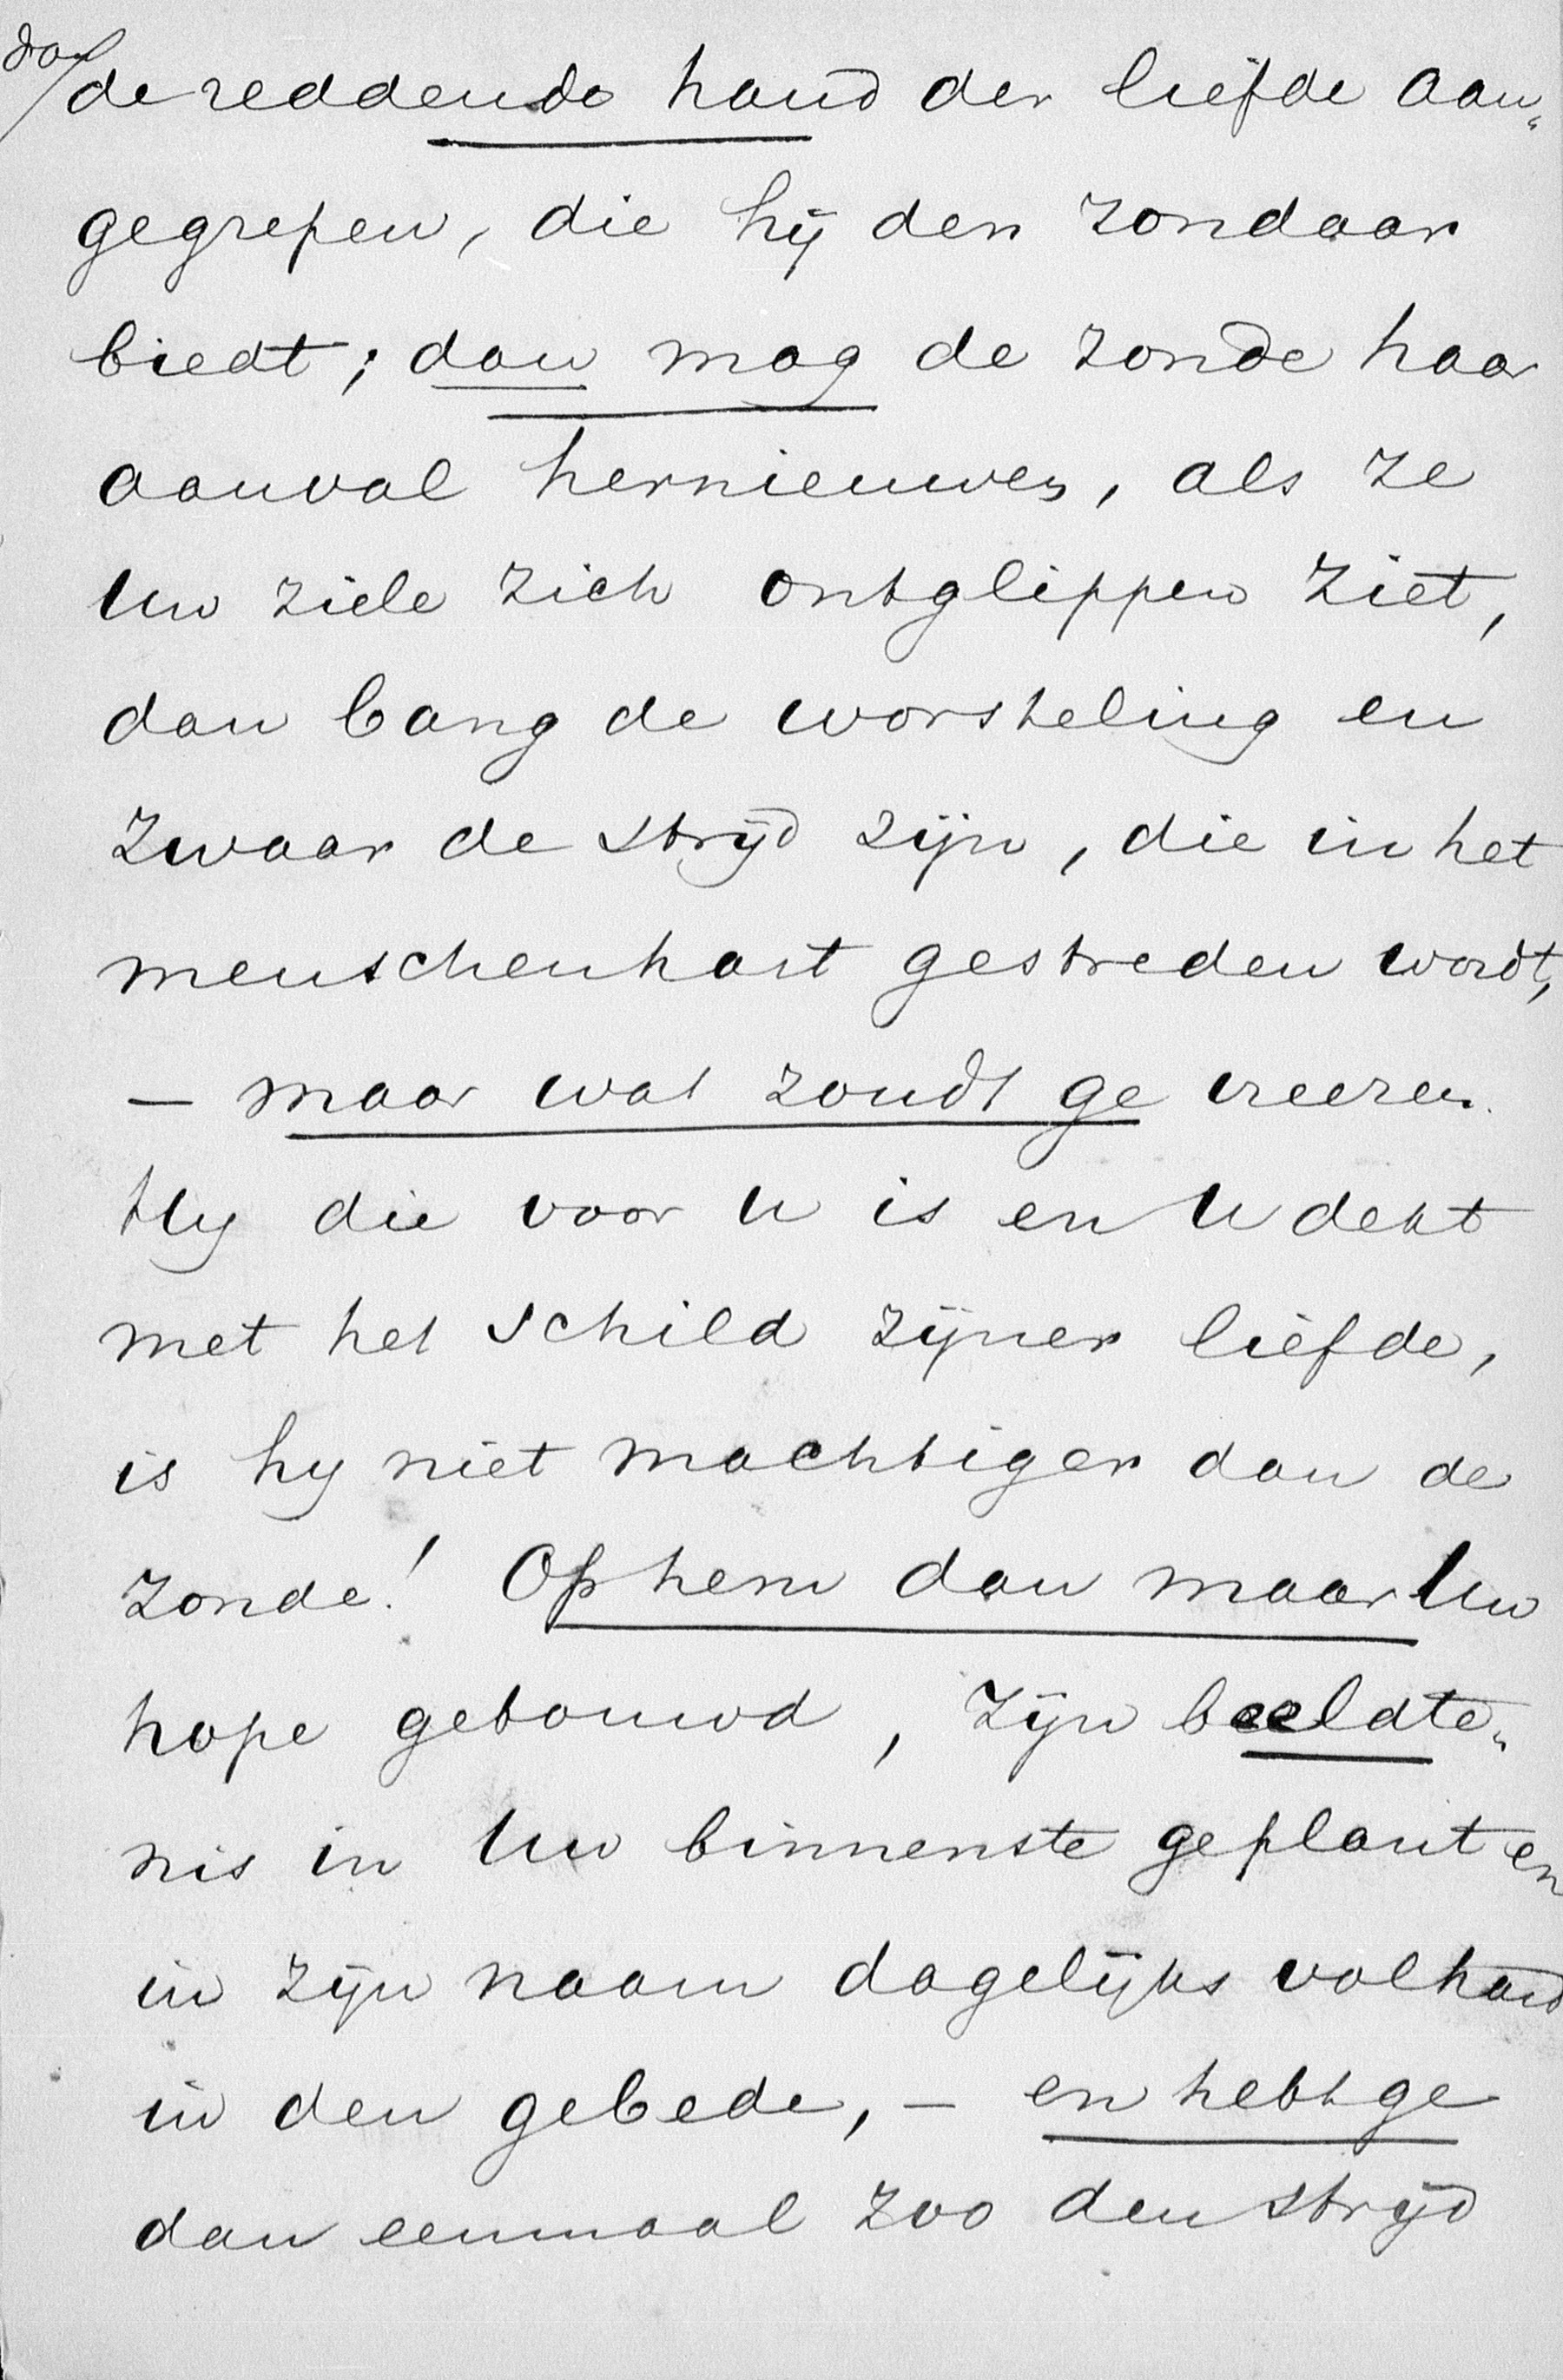 dan
de reddende hand der liefde aan„
gegrepen, die hij den zondaar
biedt; dan mag de zonde haar
aanval hernieuwen, als ze
Uw ziele zich ontglippen ziet,
dan bang de worsteling en
zwaar de strijd zijn, die in het
menschenhart gestreden wordt,
— maar wat zoudt ge vreezen.
Hij die voor U is en U dekt
met het schild zijner liefde,
is hij niet machtiger dan de
zonde! Op hem dan maar Uw
hope gebouwd, zijn beeldte„
nis in Uw binnenste geplant en
in zijn naam dagelijks volhard
in den gebede, — en hebt ge
dan eenmaal zoo den strijd